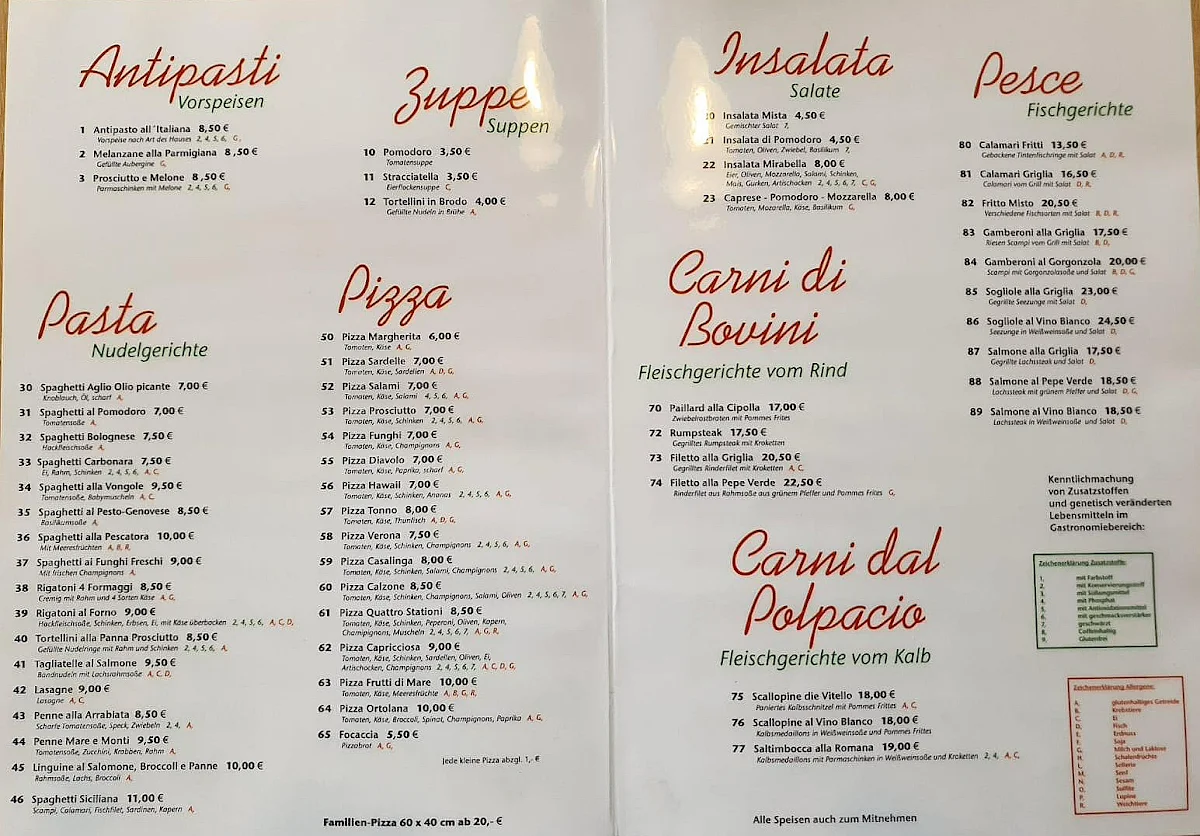 Antipasti
Vorspeisen
1 Antipasto all´Italiana 8,50 €
Vorspeise nach Art des Hauses 2, 4, 5, 6, G,
2 Melanzane alla Parmigiana 8,50 €
Gefüllte Aubergine G,
3 Prosciutto e Melone 8,50 €
Parmaschinken mit Melone 2, 4, 5, 6, G,
Zuppe
Suppen
10 Pomodoro 3,50 €
Tomatensuppe
11 Stracciatella 3,50 €
Eierflockensuppe C,
12 Tortellini in Brodo 4,00 €
Gefüllte Nudeln in Brühe A,
Pasta
Nudelgerichte
30 Spaghetti Aglio Olio picante 7,00 €
Knoblauch, Öl, scharf A,
31 Spaghetti al Pomodoro 7,00 €
Tomatensoße A,
32 Spaghetti Bolognese 7,50 €
Hackfleischsoße A,
33 Spaghetti Carbonara 7,50 €
Ei, Rahm, Schinken 2, 4, 5, 6, A, C,
34 Spaghetti alla Vongole 9,50 €
Tomatensoße, Babymuscheln A, C,
35 Spaghetti al Pesto-Genovese 8,50 €
Basilikumsoße A,
36 Spaghetti alla Pescatora 10,00 €
Mit Meeresfrüchten A, B, R,
37 Spaghetti ai Funghi Freschi 9,00 €
Mit frischen Champignons A,
38 Rigatoni 4 Formaggi 8,50 €
Cremig mit Rahm und 4 Sorten Käse A, G,
39 Rigatoni al Forno 9,00 €
Hackfleischsoße, Schinken, Erbsen, Ei, mit Käse überbacken 2, 4, 5, 6, A, C, D,
40 Tortellini alla Panna Prosciutto 8,50 €
Gefüllte Nudelringe mit Rahm und Schinken 2, 4, 5, 6, A,
41 Tagliatelle al Salmone 9,50 €
Bandnudeln mit Lachsrahmsoße A, C, D,
42 Lasagne 9,00 €
Lasagne A, C,
43 Penne alla Arrabiata 8,50 €
Scharfe Tomatensoße, Speck, Zwiebeln 2, 4, A,
44 Penne Mare e Monti 9,50 €
Tomatensoße, Zucchini, Krabben, Rahm A,
45 Linguine al Salomone, Broccoli e Panne 10,00 €
Rahmsoße, Lachs, Broccoli A,
46 Spaghetti Siciliana 11,00 €
Scampi, Calamari, Fischfilet, Sardinen, Kapern A,
Pizza
50 Pizza Margherita 6,00 €
Tomaten, Käse A, G,
51 Pizza Sardelle 7,00 €
Tomaten, Käse, Sardellen A, D, G,
52 Pizza Salami 7,00 €
Tomaten, Käse, Salami 4, 5, 6, A, G,
53 Pizza Prosciutto 7,00 €
Tomaten, Käse, Schinken 2, 4, 5, 6, A, G,
54 Pizza Funghi 7,00 €
Tomaten, Käse, Champignons A, G,
55 Pizza Diavolo 7,00 €
Tomaten, Käse, Paprika, scharf A, G,
56 Pizza Hawaii 7,00 €
Tomaten, Käse, Schinken, Ananas 2, 4, 5, 6, A, G,
57 Pizza Tonno 8,00 €
Tomaten, Käse, Thunfisch A, D, G,
58 Pizza Verona 7,50 €
Tomaten, Käse, Schinken, Champignons 2, 4, 5, 6, A, G,
59 Pizza Casalinga 8,00 €
Tomaten, Käse, Schinken, Salami, Champignons 2, 4, 5, 6, A, G,
60 Pizza Calzone 8,50 €
Tomaten, Käse, Schinken, Champignons, Salami, Oliven 2, 4, 5, 6, 7, A, G,
61 Pizza Quattro Stationi 8,50 €
Tomaten, Käse, Schinken, Peperoni, Oliven, Kapern,
Champignons, Muscheln 2, 4, 5, 6, 7, A, G, R,
62 Pizza Capricciosa 9,00 €
Tomaten, Käse, Schinken, Sardellen, Oliven, Ei,
Artischocken, Champignons 2, 4, 5, 6, 7, A, C, D, G,
63 Pizza Frutti di Mare 10,00 €
Tomaten, Käse, Meeresfrüchte A, B, G, R,
64 Pizza Ortolana 10,00 €
Tomaten, Käse, Broccoli, Spinat, Champignons, Paprika A, G,
65 Focaccia 5,50 €
Pizzabrot A, G,
Jede kleine Pizza abzgl. 1,- €
Familien-Pizza 60 x 40 cm ab 20,- €
Insalata
Salate
Insalata Mista 4,50 €
Gemischter Salat 7,
Insalata di Pomodoro 4,50 €
Tomaten, Oliven, Zwiebel, Basilikum 7,
22 Insalata Mirabella 8,00 €
Eier, Oliven, Mozzarella, Salami, Schinken,
Mais, Gurken, Artischocken 2, 4, 5, 6, 7, C, G,
23 Caprese - Pomodoro - Mozzarella 8,00 €
Tomaten, Mozarella, Käse, Basilikum G,
Carni di
Bovini
Fleischgerichte vom Rind
70 Paillard alla Cipolla 17,00 €
Zwiebelrostbraten mit Pommes Frites
72 Rumpsteak 17,50 €
Gegrilltes Rumpsteak mit Kroketten
73 Filetto alla Griglia 20,50 €
Gegrilltes Rinderfilet mit Kroketten A, C,
74 Filetto alla Pepe Verde 22,50 €
Rinderfilet aus Rahmsoße aus grünem Pfeffer und Pommes Frites G,
Carni dal
Polpacio
Fleischgerichte vom Kalb
75 Scallopine die Vitello 18,00 €
Paniertes Kalbsschnitzel mit Pommes Frittes A, C,
76 Scallopine al Vino Blanco 18,00 €
Kalbsmedaillons in Weißweinsoße und Pommes Frittes
77 Saltimbocca alla Romana 19,00 €
Kalbsmedaillons mit Parmaschinken in Weißweinsoße und Kroketten 2, 4, A, C,
Alle Speisen auch zum Mitnehmen
Pesce
Fischgerichte
80 Calamari Fritti 13,50 €
Gebackene Tintenfischringe mit Salat A, D, R,
81 Calamari Griglia 16,50 €
Calamari vom Grill mit Salat D, R,
82 Fritto Misto 20,50 €
Verschiedene Fischsorten mit Salat B, D, R,
83 Gamberoni alla Griglia 17,50 €
Riesen Scampi vom Grill mit Salat B, D,
84 Gamberoni al Gorgonzola 20,00 €
Scampi mit Gorgonzolasoße und Salat B, D, G,
85 Sogliole alla Griglia 23,00 €
Gegrillte Seezunge mit Salat D,
86 Sogliole al Vino Bianco 24,50 €
Seezunge in Weißweinsoße und Salat D,
87 Salmone alla Griglia 17,50 €
Gegrillte Lachssteak und Salat D,
88 Salmone al Pepe Verde 18,50 €
Lachssteak mit grünem Pfeffer und Salat D, G,
89 Salmone al Vino Bianco 18,50 €
Lachssteak in Weißweinsoße und Salat D,
Kenntlichmachung
von Zusatzstoffen
und genetisch veränderten
Lebensmitteln im
Gastronomiebereich:
Zeichenerklärung Zusatzstoffe:
1. mit Farbstoff
2. mit Konservierungsstoff
3. mit Süßungsmittel
4. mit Phosphat
5. mit Antioxidationsmittel
6. mit geschmacksverstärker
7. geschwärzt
8. Coffeinhaltig
9. Glutenfrei
Zeichenerklärung Allergene:
A, glutenhaltiges Getreide
B, Krebstiere
C, Ei
D, Fisch
E, Erdnuss
F, Soja
G, Milch und Laktose
H, Schalenfrüchte
L, Sellerie
M, Senf
N, Sesam
O, Sulfite
P, Lupine
R, Weichtiere